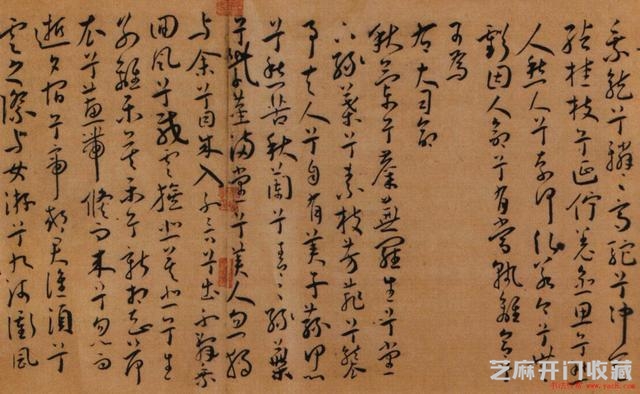 乘龍兮轔〻高駝兮冲天
結桂枝兮延佇羌愈思兮愁
人愁人兮奈何願若今兮無
虧固人命兮有當孰離合兮
可為
右大司命
秋蘭兮蘼蕪羅生兮堂
下綠葉兮素枝芳菲兮襲
予夫人兮自有美子蓀何以
兮愁苦秋蘭兮青〻綠葉
兮紫莖滿堂兮美人忽獨
與余兮目成入不言兮出不辭乘
回風兮載雲旗悲莫悲兮生
別離樂莫樂兮新相知荷
衣兮蕙帶儵而來兮忽而
逝夕宿兮帝郊君誰須兮
雲之際與女游兮九河衝風
芝麻开门收藏